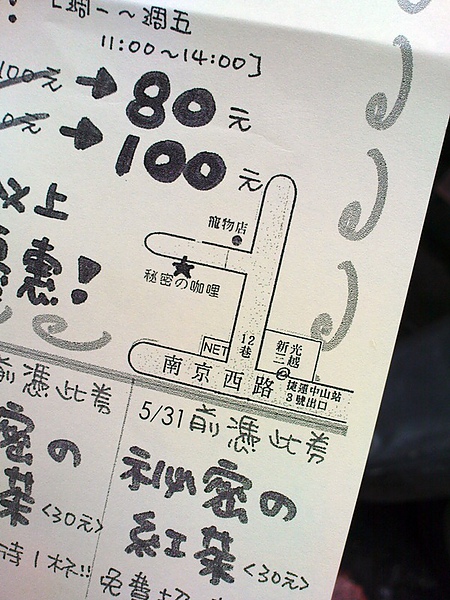 [週一～週五
11:00～14:00]
100元→80元
元→100元
以上
惠!
寵物店
秘密の咖哩
12巷
NET
新光三越
南京西路
捷運中山站
3號出口
前憑此券
5/31前憑此券
密の
茶<30元>
祕密の
紅茶<30元>
待1杯!!
免費招